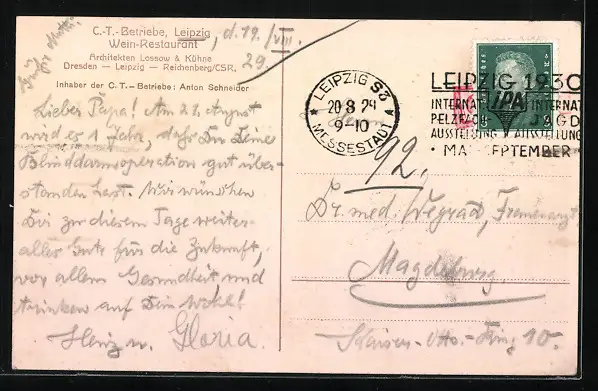 C.-T.-Betriebe, Leipzig, d. 19./VIII.
Wein-Restaurant 29.
Architekten Lossow & Kühne
Dresden — Leipzig — Reichenberg/CSR.
Inhaber der C.T.-Betriebe: Anton Schneider
Lieber Papa! Am 21. August
wird es 1 Jahr, daß Du Deine
Blinddarmoperation gut über-
standen hast. Wir wünschen
Dir zu diesem Tage weiter
alles Gute für die Zukunft,
vor allem Gesundheit, und
trinken auf Dein Wohl!
Heinz u. Gloria.
LEIPZIG
20 8 29
9-10
* MESSESTADT
LEIPZIG 1930
INTERNAT INTERNAT
IPA
PELZFACH JAGD
AUSSTELLUNG AUSSTELLUNG
· MAI SEPTEMBER ·
Herrn
Dr. med. Wegrad, Frauenarzt
Magdeburg
Kaiser-Otto-Ring 10.